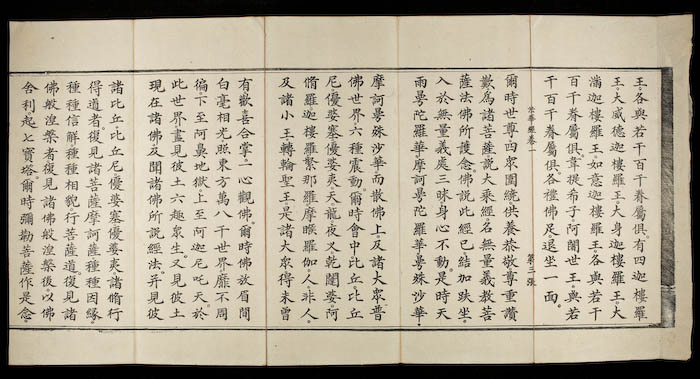 王。各與若干百千眷屬俱。有四迦樓羅
王。大威德迦樓羅王。大身迦樓羅王。大
滿迦樓羅王。如意迦樓羅王。各與若干
百千眷屬俱。韋提希子阿闍世王。與若
干百千眷屬俱。各禮佛足。退坐一面。
法華經卷一 第三張
爾時世尊。四眾圍繞。供養恭敬尊重讚
歎。為諸菩薩說大乘經。名無量義。教菩
薩法。佛所護念。佛說此經已。結加趺坐。
入於無量義處三昧。身心不動。是時天
雨曼陀羅華。摩訶曼陀羅華。曼殊沙華。
摩訶曼殊沙華。而散佛上。及諸大眾。普
佛世界。六種震動。爾時會中比丘。比丘
尼。優婆塞。優婆夷。天龍夜叉。乾闥婆。阿
脩羅。迦樓羅。緊那羅。摩睺羅伽。人非人。
及諸小王。轉輪聖王。是諸大眾。得未曾
有。歡喜合掌。一心觀佛。爾時佛放眉間
白毫相光。照東方萬八千世界。靡不周
徧。下至阿鼻地獄。上至阿迦尼吒天。於
此世界。盡見彼土六趣眾生。又見彼土
現在諸佛。及聞諸佛所說經法。并見彼
諸比丘比丘尼優婆塞優婆夷。諸脩行
得道者。復見諸菩薩摩訶薩。種種因緣。
種種信解。種種相貌。行菩薩道。復見諸
佛般涅槃者。復見諸佛般涅槃後。以佛
舍利。起七寶塔。爾時彌勒菩薩。作是念。